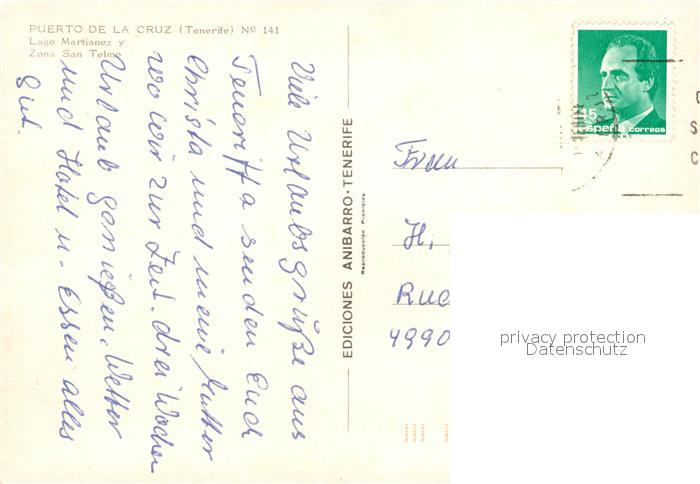 PUERTO DE LA CRUZ (Tenerife) Nº 141
Lago Martianez y
Zona San Telmo
Viele Urlaubsgrüße aus
Teneriffa senden Euch
Christa und meine Mutter
wo wir zur Zeit. drei Wochen
Urlaub genießen. Wetter
und Hotel u. Essen alles
Gut.
EDICIONES ANIBARRO - TENERIFE
Reproducción Prohibida
45
España correos
Frau
H.
Rue
4990
privacy protection
Datenschutz